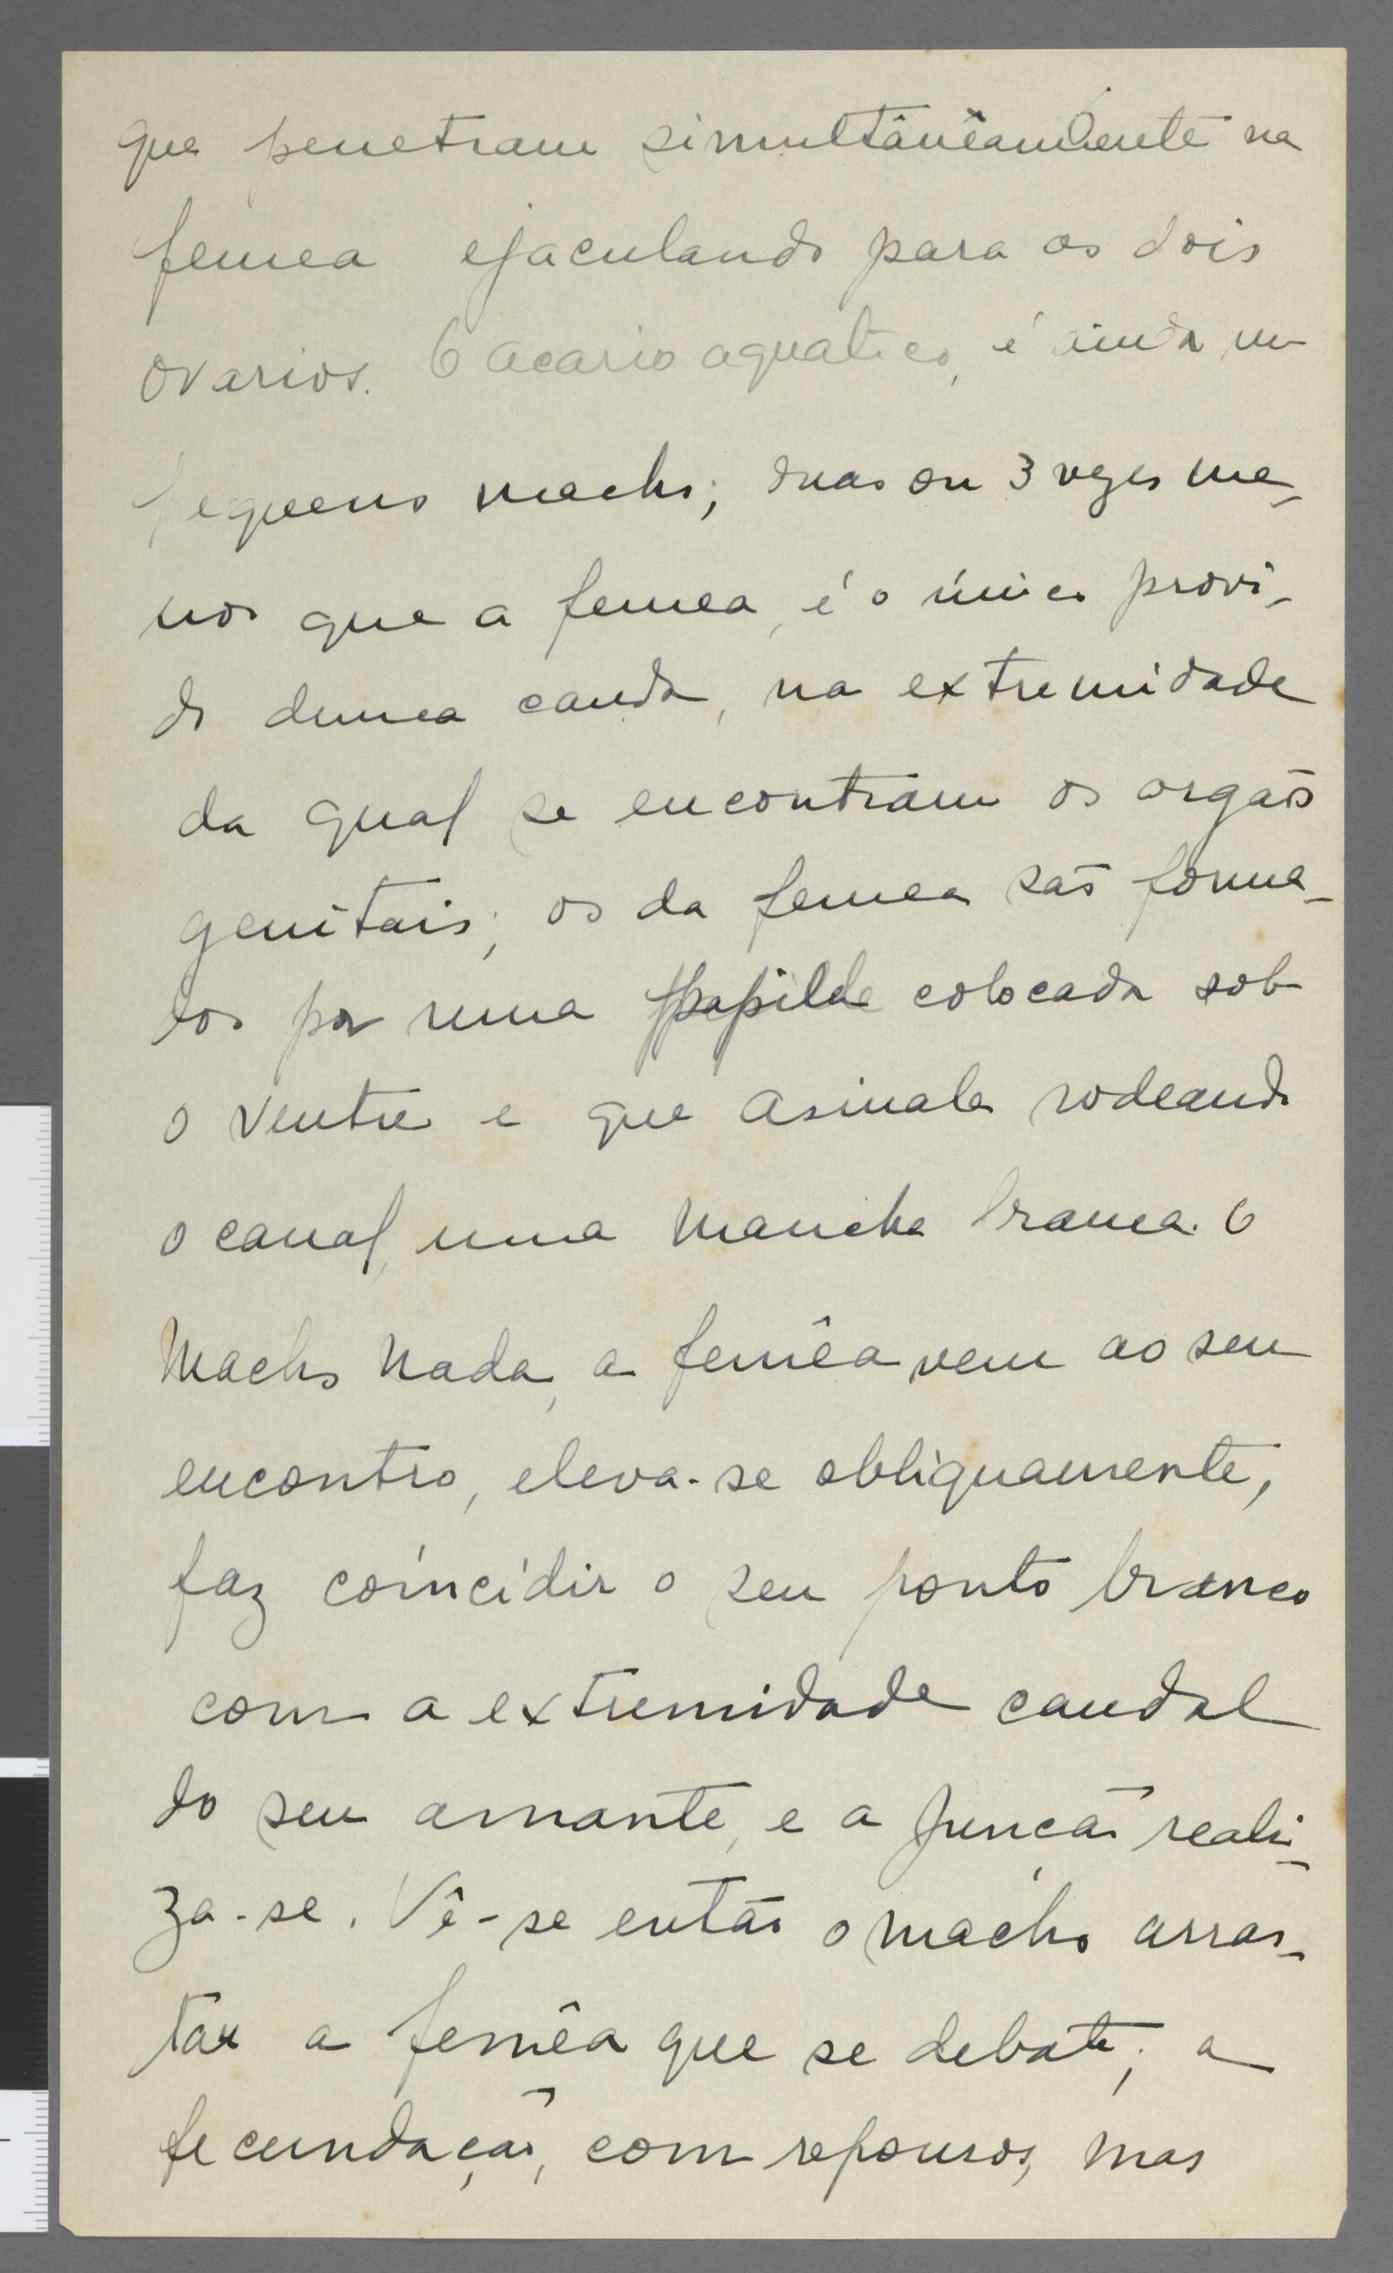 que penetram simultânêamente na
femea ejaculando para os dois
ovarios. O acario aquatico, é ainda um
pequeno macho; duas ou 3 vezes me-
nor que a femea, é o único provi-
do duma cauda, na extremidade
da qual se encontram os orgãos
genitais; os da femea são forma-
dos por uma papila colocada sob
o ventre e que asinala rodeando
o canal, uma mancha branca. O
macho nada, a femêa vem ao seu
encontro, eleva-se obliquamente,
faz coincidir o seu ponto branco
com a extremidade caudal
do seu amante, e a junção reali-
za-se. Vê-se então o macho arras-
tar a femêa que se debate; a
fecundação, com repousos, mas